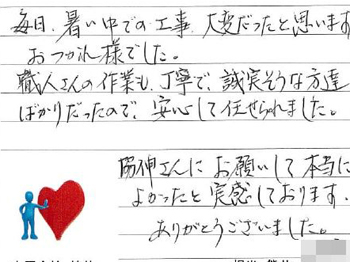 毎日、暑い中での工事、大変だったと思います
おつかれ様でした。
職人さんの作業も、丁寧で、誠実そうな方達
ばかりだったので、安心して任せられました。
協伸さんにお願いして本当に
よかったと実感しております。
ありがとうございました。